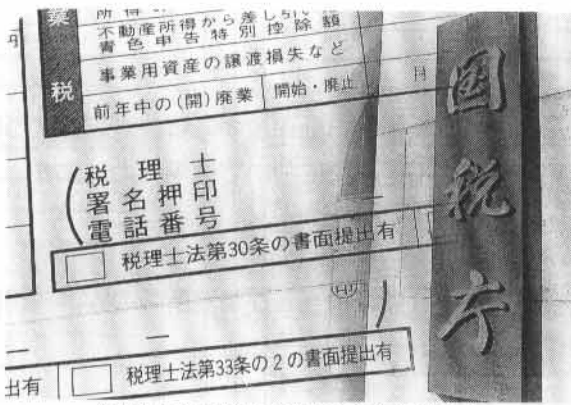 業
税
所得
不動産所得から差し引いた
青色申告特別控除額
事業用資産の譲渡損失など
前年中の(開)廃業
開始・廃止
月
円
税理士
署名押印
電話番号
税理士法第30条の書面提出有
印
出有
税理士法第33条の2の書面提出有
国税庁